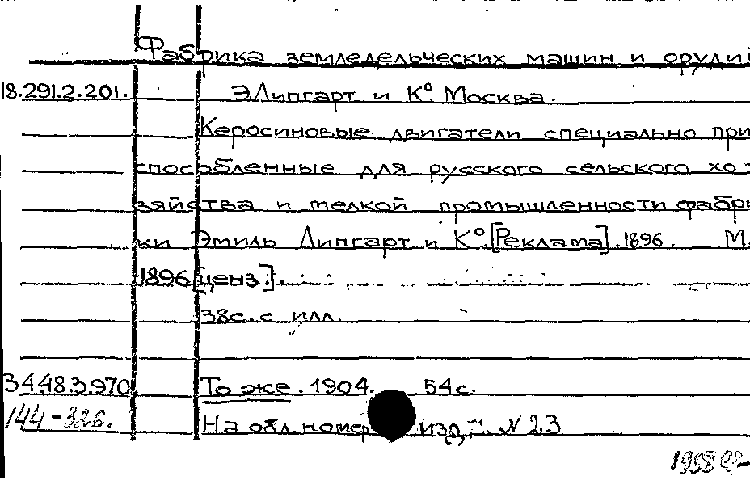 Фабрика земледельческих машин и орудий
18.291.2.201. Э.Липгарт и Кº. Москва.
Керосиновые двигатели специально при
способленные для русского сельского хо-
зяйства и мелкой промышленности фабри
ки Эмиль Липгарт и Кº. [Реклама]. 1896. М.
1896 [ценз.].
38с. с илл.
34.48.3.970 То же. 1904. 54с.
144-326. На обл. номер изд. N 23